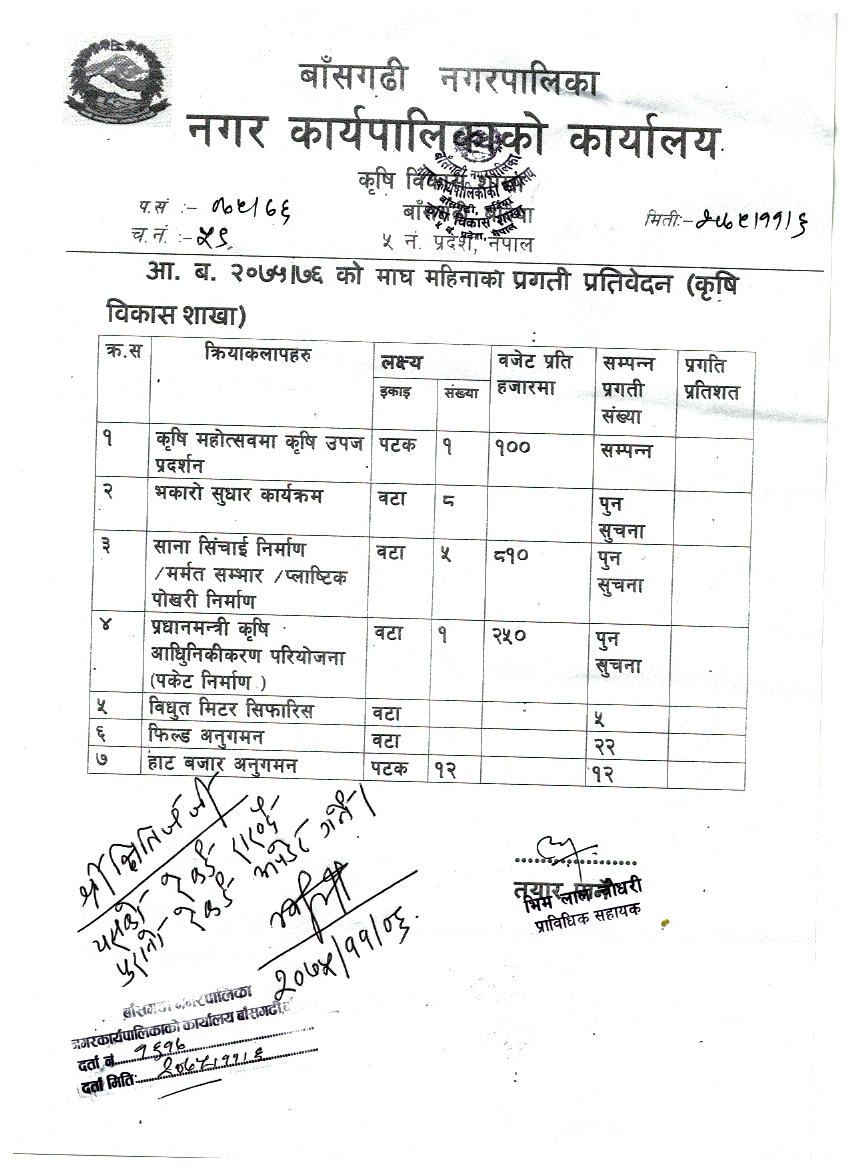 बाँसगढी नगरपालिका
नगर कार्यपालिकाको कार्यालय
कृषि विकास शाखा
प.सं :- ७५/७६
बाँसगढी, बर्दिया
मिति:- २०७५/११/६
च.नं. :- ५९
५ नं. प्रदेश, नेपाल
बाँसगढी नगरपालिका
नगर कार्यपालिकाको कार्यालय
बाँसगढी, बर्दिया
कृषि विकास शाखा
५ नं. प्रदेश, नेपाल
आ. ब. २०७५।७६ को माघ महिनाको प्रगती प्रतिवेदन (कृषि
विकास शाखा)
क्र.स क्रियाकलापहरु लक्ष्य वजेट प्रति हजारमा सम्पन्न प्रगती संख्या प्रगति प्रतिशत
इकाइ संख्या
१ कृषि महोत्सवमा कृषि उपज पटक १ १०० सम्पन्न
प्रदर्शन
२ भकारो सुधार कार्यक्रम वटा ८ पुन
सुचना
३ साना सिंचाई निर्माण वटा ५ ८१० पुन
/मर्मत सम्भार /प्लाष्टिक सुचना
पोखरी निर्माण
४ प्रधानमन्त्री कृषि वटा १ २५० पुन
आधिुनिकीकरण परियोजना सुचना
(पकेट निर्माण )
५ विधुत मिटर सिफारिस वटा ५
६ फिल्ड अनुगमन वटा २२
७ हाट बजार अनुगमन पटक १२ १२
श्री क्षितिज जी
यसको रेकर्ड राख्दै
पुरानो रेकर्ड अपडेट गर्ने।
२०७५/११/०६
तयार
भिम लाल चौधरी
प्राविधिक सहायक
बाँसगढी नगरपालिका
नगरकार्यपालिकाको कार्यालय बाँसगढी
दर्ता नं. १६१७
दर्ता मिति: २०७५/११/६